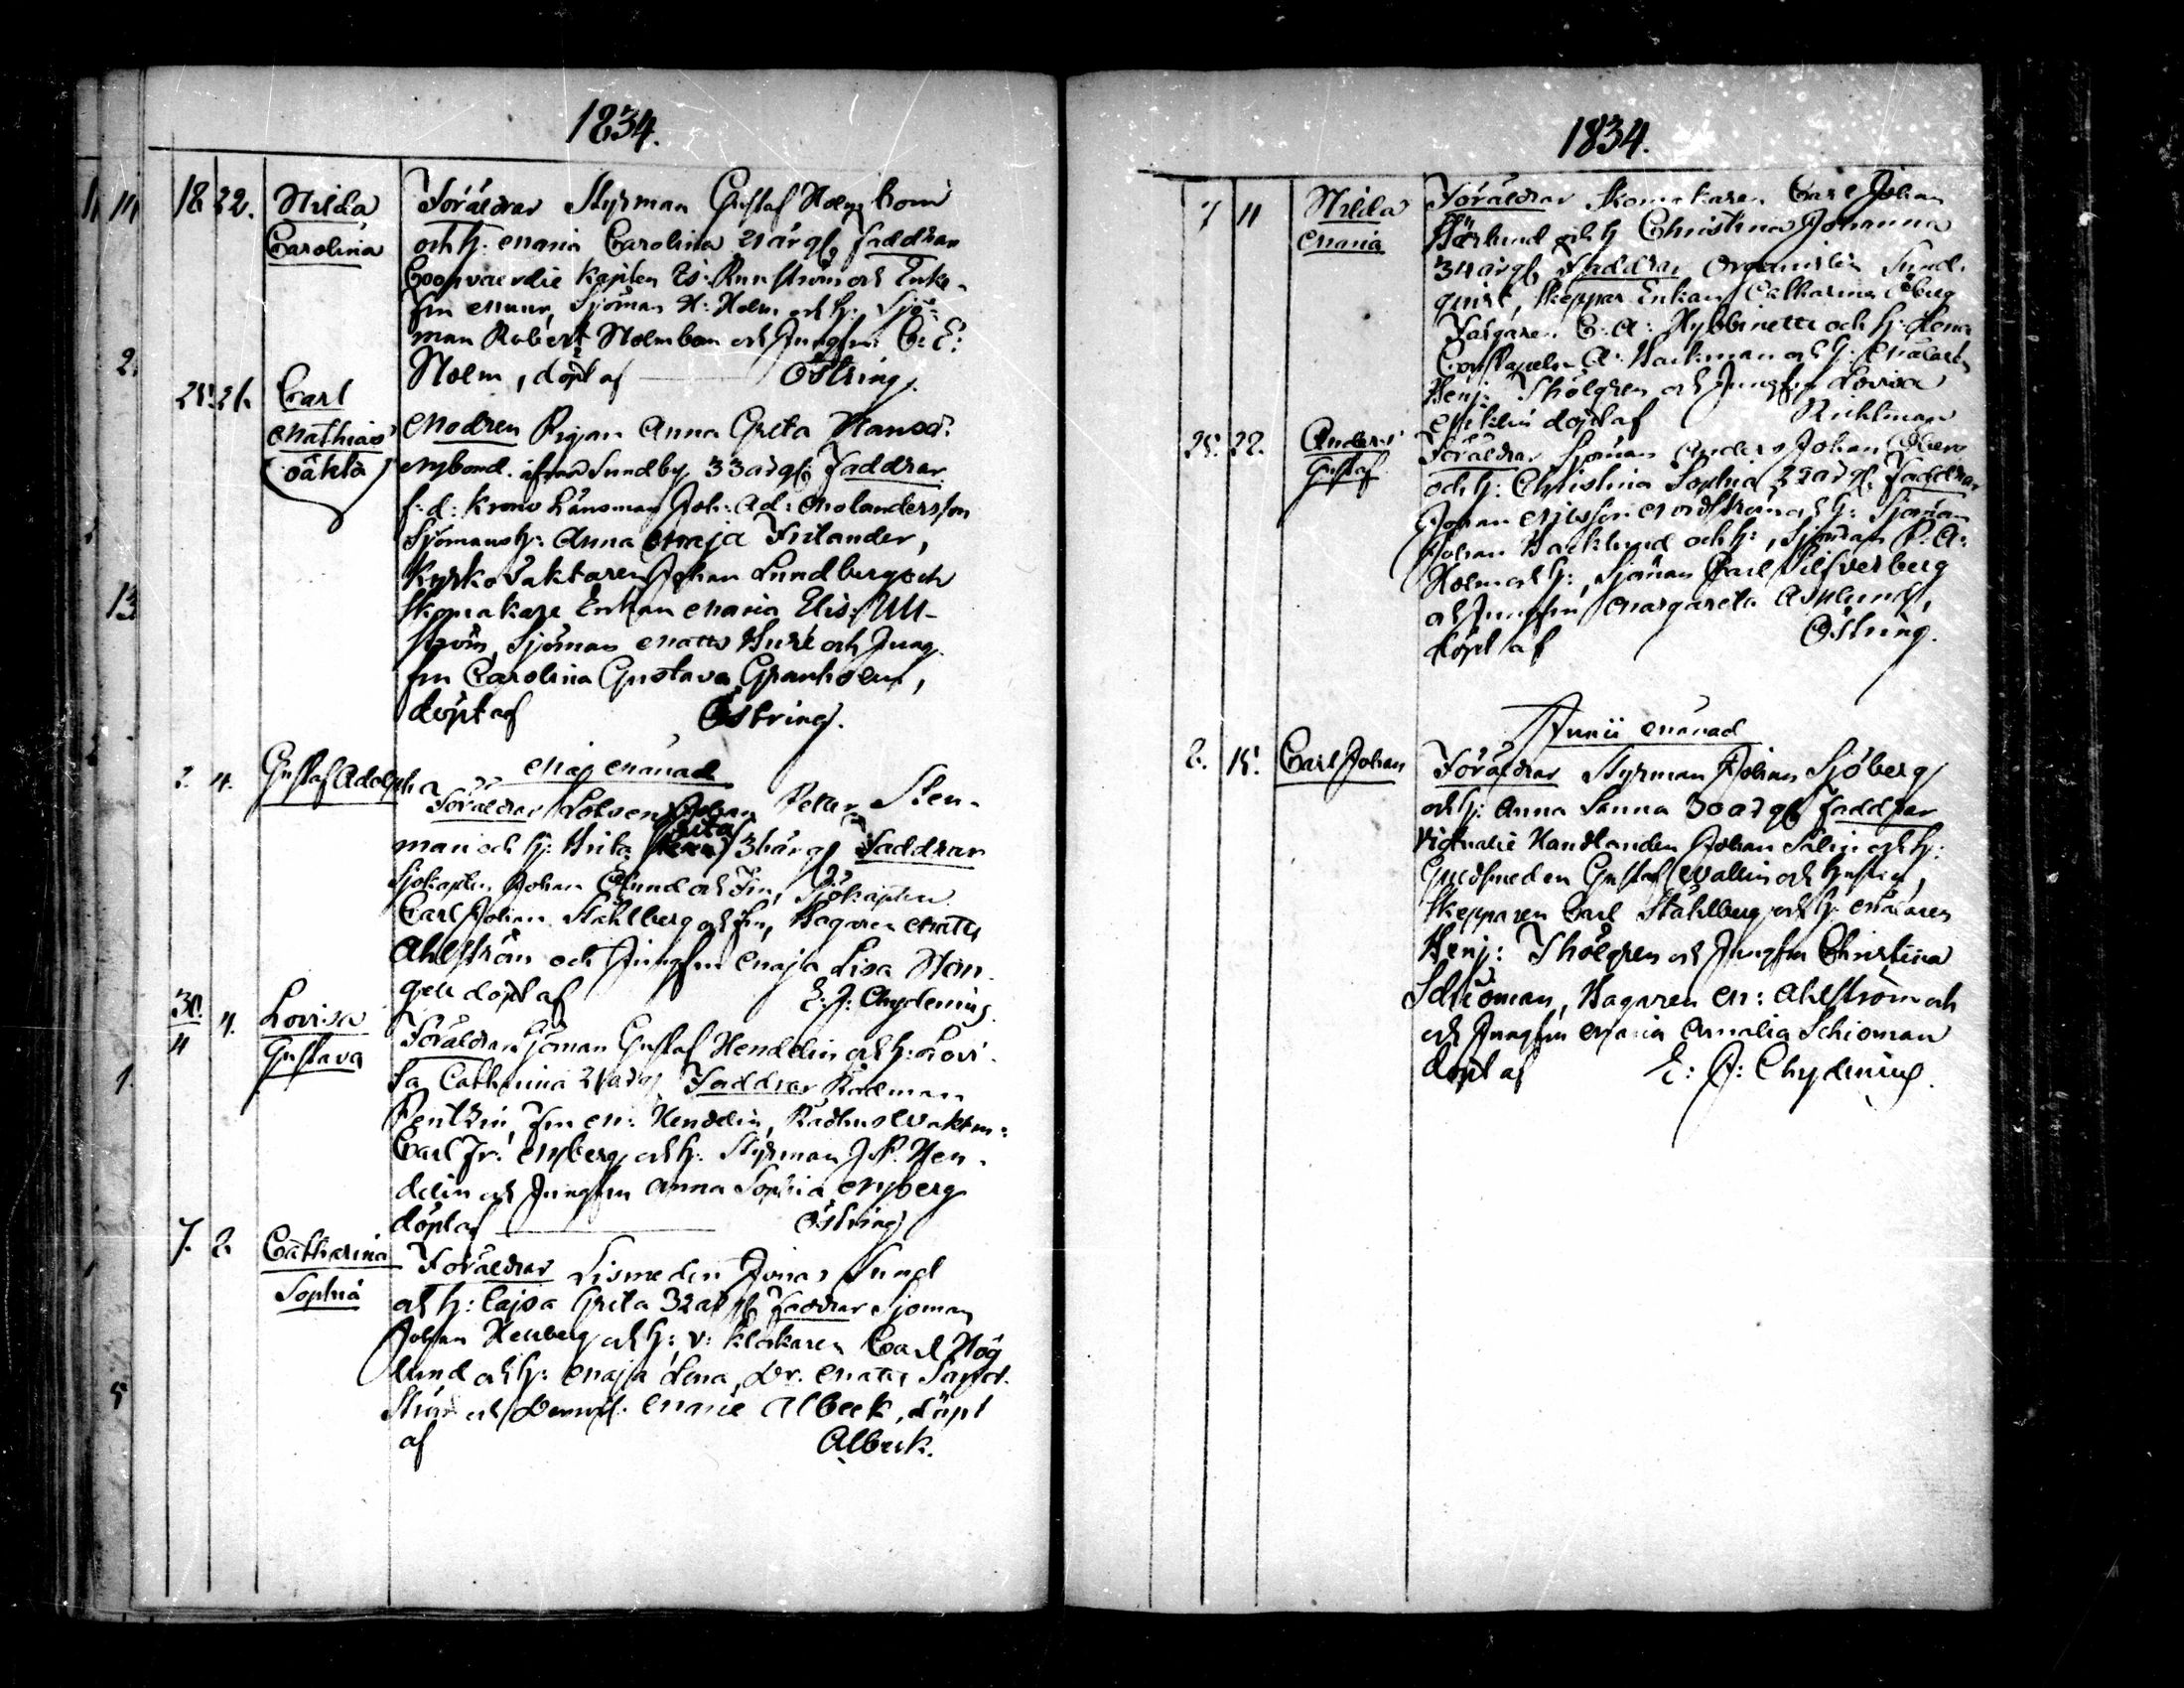 1834.
18 22. Hilda Föräldrar Styrman Gustaf Holmstrom
Carolina och h: Maria Carolina 21 år gl, Faddrar
Coopvaerdie Kapten Es: Runström och Enke-
fru Munn, Sjöman H: Holm och h:, Sjö-
man Robert Holmbom och Jungfru C: E:
Holm, döpt af Östring.
25. 26. Carl
Mathias Modren Pigan Anna Greta Hansd:
(oäkta) Nybond. ifrån Sundby 33 år gl: Faddrar
f: d: Krono Länsman Joh: Ad: Molandersson
Sjömansh: Anna Maja Finlander,
Kyrko Vaktaren Johan Lundberg och
Skomakare Enkan Maria Elis: Ull-
ström, Sjöman Matts Bure och Jung-
fru Carolina Gustava Granholm,
döpt af Östring.
Maj Månad
2. 4. Gustaf Adolph Föräldrar Lotsen Johan Petter Sten-
man och h: Brita Greta 36 år gl Faddrar
Sjökapten Johan Öhund och Fru, Sjökapten
Carl Johan Ståhlberg och fru, Bagaren Matts
Ahlström och Jungfru Maja Lisa Hon-
gell döpt af E: J: Chydenius.
30/4 4. Lovisa Föräldrar Sjöman Gustaf Hendelin och h: Lovi-
Gustava sa Cathrina 21 år gl Faddrar Rådman
Pentzin, Fru M: Hendelin, Rådhus Vaktm:
Carl Fr: Nyberg och h: Styrman J. P. Hen-
delin och Jungfru Anna Sophia Nyberg
döpt af Östring
7. 8. Catharina Föräldrar Lismeden Jonas Sund
Sophia och h: Cajsa Greta 32 år gl Faddrar Sjöman
Johan Hellberg och h:, v: klockaren Carl Hög
lund och h: Maja Lena, Dr. Matts Sand-
ström och Demois: Marie Albeck, döpt
af Albeck.
1834.
7 11 Hilda Föräldrar Skomakaren Carl Johan
Maria Björlund och h Christina Johanna
34 år gl, Faddrar Organisten Sund-
qvist, Skeppar Enkan Catharina Öberg
Färgaren C: A: Hybbinette och h: Lena
Constapeln A: Backman och h: Målaren
Benj: Thölgren och Jungfru Lovisa
döpt af Richtman
25. 22. Anders Föräldrar Sjöman Anders Johan
Gustaf och h: Christina Sophia 22 år gl, Faddrar
Johan Nordström och h: Sjöman
Johan Backlund och h:, Sjöman P. A:
Holm och h:, Sjöman Carl Silfverberg
och Jungfru Margareta Asplund,
döpt af Östring.
Junii Månad
8. 15. Carl Johan Föräldrar Styrman Johan Sjöberg
och h: Anna Sanna 30 år gl Faddrar
Victualie Handlanden Johan Salin och h:
Guldsmeden Gustaf Wallin och hustru,
Skepparen Carl Ståhlberg och h: Målaren
Benj: Thölgren och Jungfru Christina
Schöman, Bagaren M: Ahlström och
och Jungfru Maria Amalia Schioman
döpt af E: J: Chydenius.